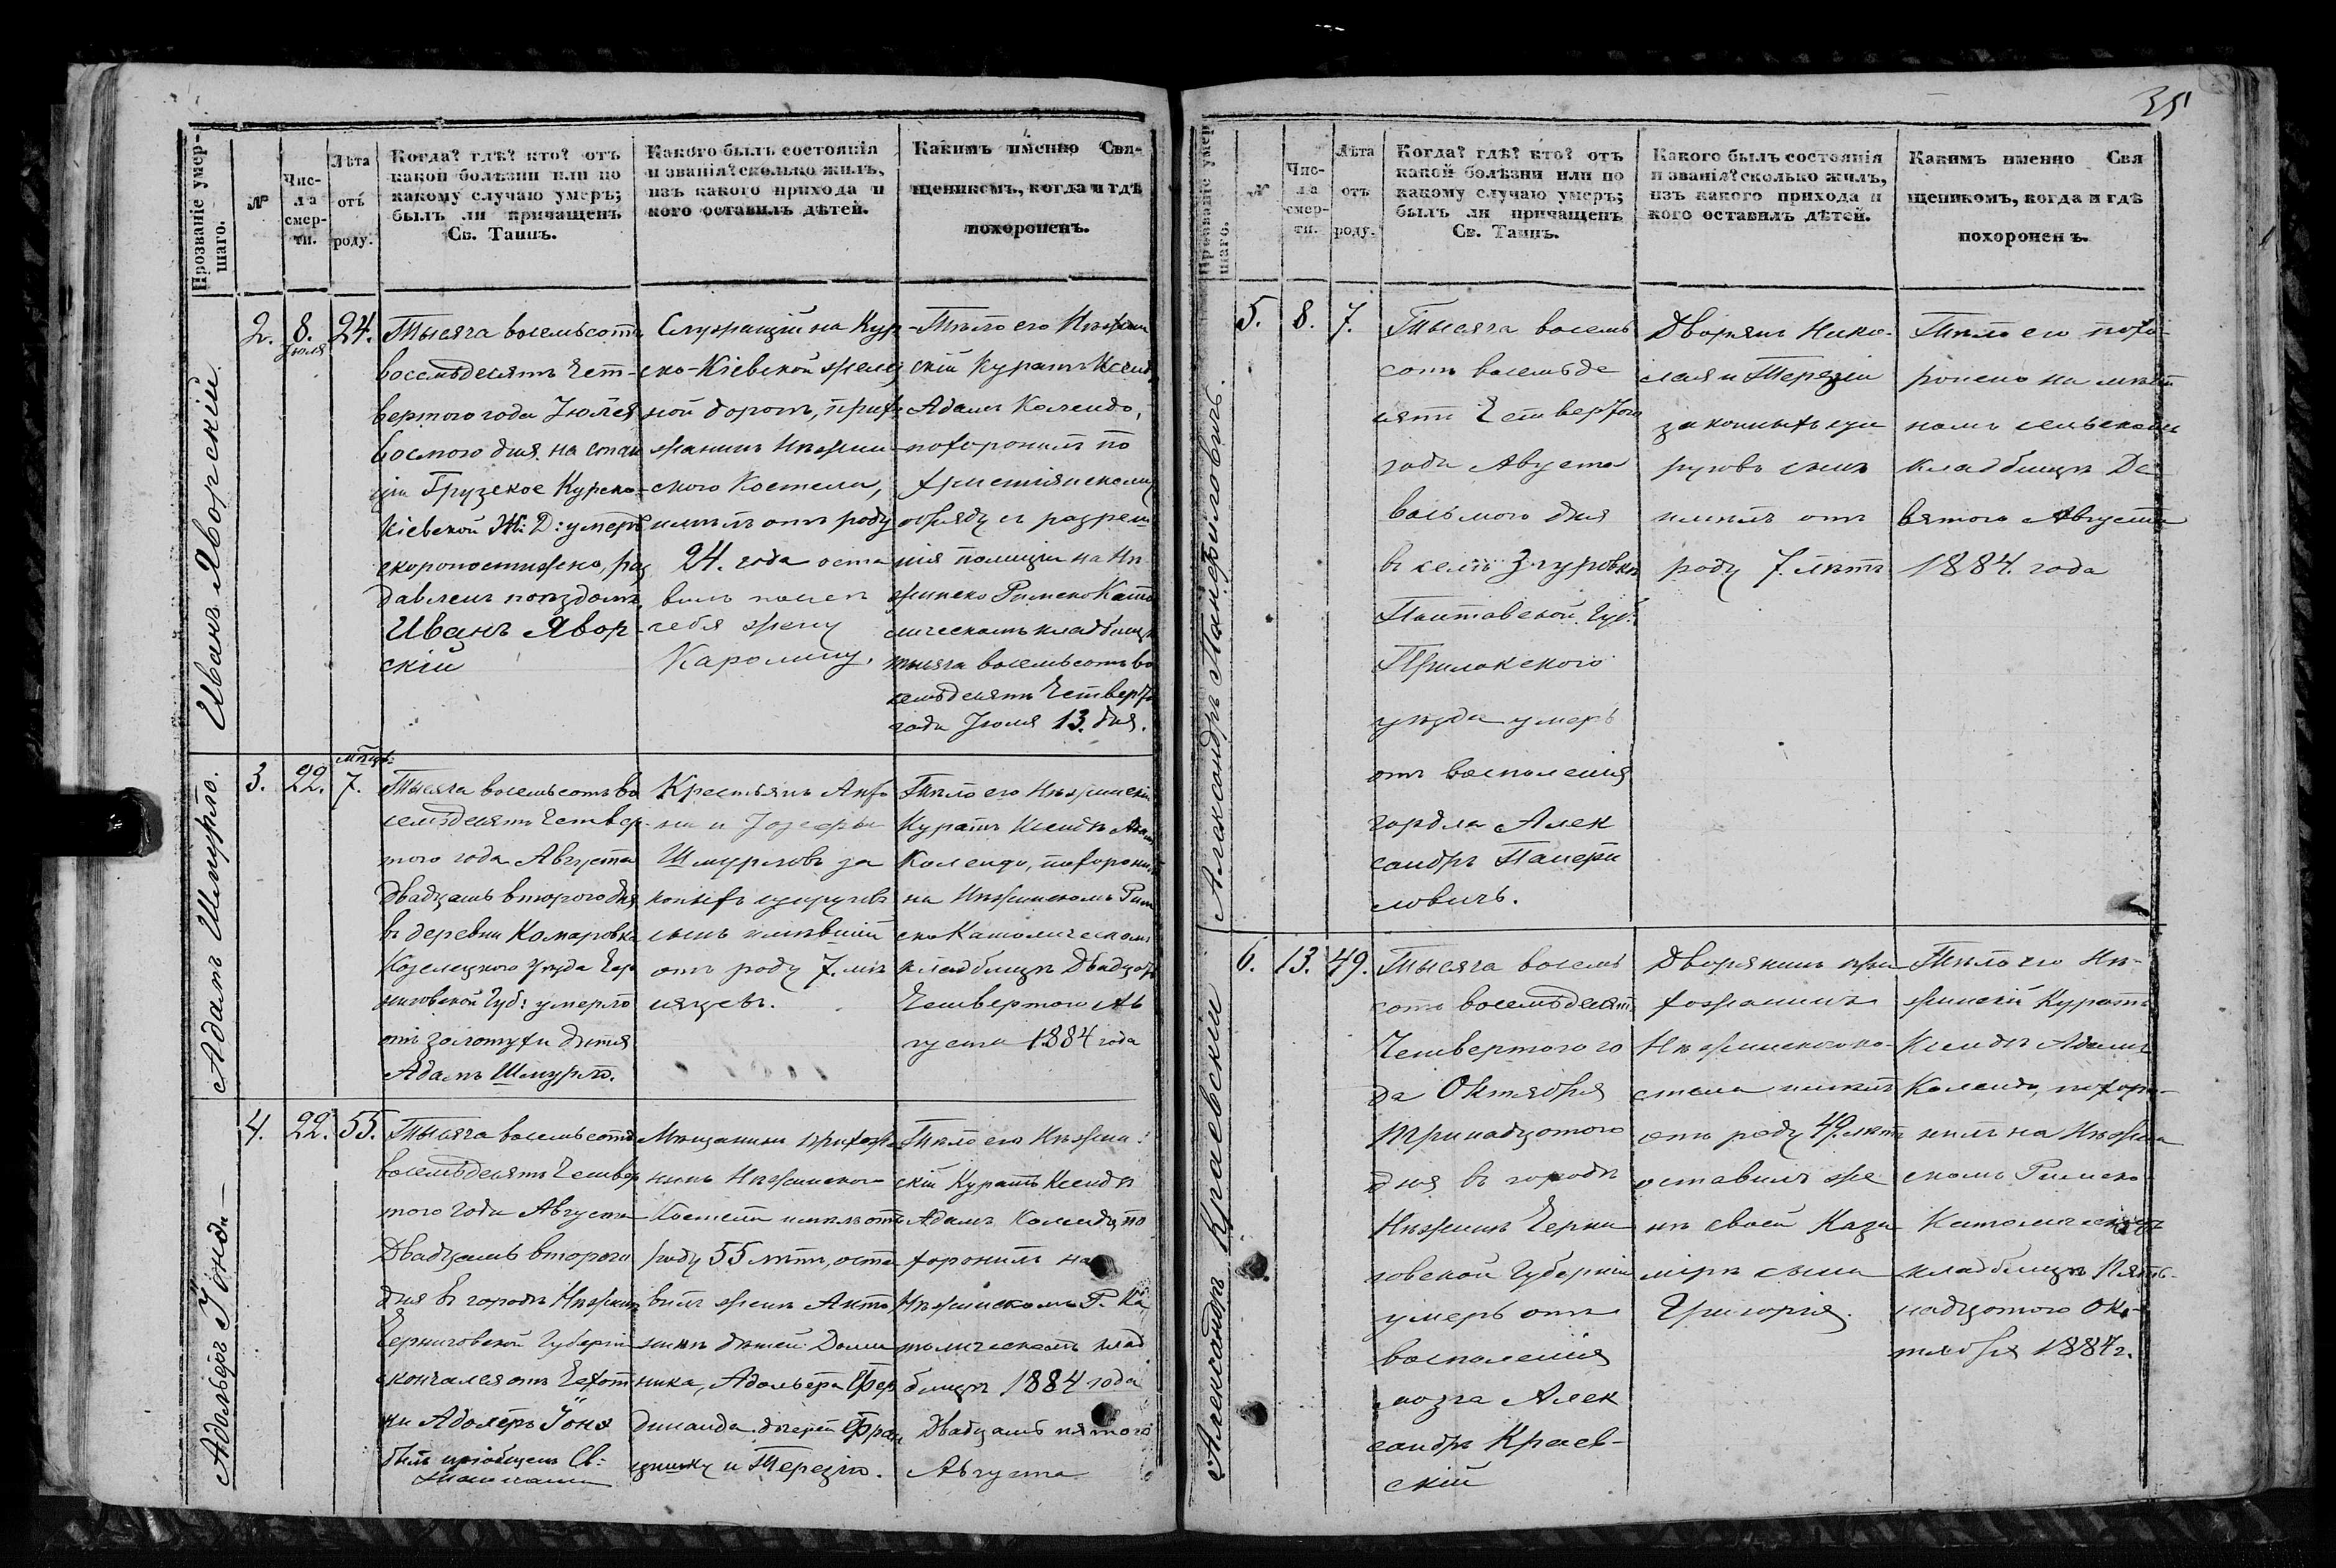 35
Прозваніе умер-
шаго.
№
Чис-
ла
смер-
ти.
Лѣта
отъ
роду.
Когда? гдѣ? кто? отъ
какой болѣзни или по
какому случаю умеръ;
былъ ли причащенъ
Св. Таинъ.
Какого былъ состоянія
и званія? сколько жилъ,
изъ какого прихода и
кого оставилъ дѣтей.
Какимъ именно Свя-
щеникомъ, когда и гдѣ
похороненъ.
Иванъ Яворскій.
2.
8.
Іюля
24.
Тысяча восемьсотъ
восемьдесятъ Чет-
вертого года Іюля
восмого дня на стан
ціи Грузское Курско-
Кіевской Ж: Д: умеръ
скоропостижно, раз
давленъ поѣздомъ
Иванъ Явор-
скій
Служащій на Кур-
ско-Кіевской желѣз
ной дорогѣ, прихо
жанинъ Нѣжин-
ского Костела,
имѣлъ отъ роду
24. года оста
вилъ после
себя жену
Каролину.
Тѣло его Нѣжин
скій Куратъ Ксендз
Адамъ Календо,
похоронилъ по
христіянскому
обряду съ разреше
нія полиціи на Нѣ
жинско Римско Като
лическомъ кладбищѣ
тысяча восемьсотъ во
семьдесятъ Четверто
года Іюля 13. дня.
Адамъ Шмурло.
3.
22.
мѣсяц:
7.
Тысяча восемьсотъ во
семьдесятъ Четвер-
того года Августа
Двадцать второго дня
въ деревни Комаровка
Козелецкого уѣзда Чер
ниговской Губ: умерло
отъ золотухи дитя
Адамъ Шмурло.
Крестьянъ Анто
на и Іозефы
Шмурловъ за
конныхъ супруговъ
сынъ имѣвшій
отъ роду 7. мѣ
сяцевъ.
Тѣло его Нѣжинскій
Куратъ Ксендзъ Адамъ
Календо, похоронилъ
на Нѣжинскомъ Рим
ско Католическомъ
кладбищѣ Двадцать
Четвертого Ав
густа 1884 года
Адольфъ Іона
4.
22.
55.
Тысяча восемьсотъ
восемьдесятъ Четвер
того года Августа
Двадцать второго
дня въ городѣ Нѣжинѣ
Черниговской Губерніи
скончался отъ Чахот
ки Адольфъ Іона
былъ пріобщенъ Св:
Тайнами
Мѣщанинъ прихожа
нинъ Нѣжинского
Костела имѣлъ отъ
роду 55 лѣтъ, оста
вилъ жену Анто
нину дѣтей Доми
ника, Адольфа Фер
динанда дочерей Фран
цишку и Терезію.
Тѣло его Нѣжин:
скій Куратъ Ксендзъ
Адамъ Календо по
хоронилъ на
Нѣжинскомъ Р. Ка
толическомъ клад
бищѣ 1884 года
Двадцать пятого
Августа
Прозваніе умер-
шаго.
№
Чис-
ла
смер-
ти.
Лѣта
отъ
роду.
Когда? гдѣ? кто? отъ
какой болѣзни или по
какому случаю умеръ;
былъ ли причащенъ
Св. Таинъ.
Какого былъ состоянія
и званія? сколько жилъ,
изъ какого прихода и
кого оставилъ дѣтей.
Какимъ именно Свя
щеникомъ, когда и гдѣ
похороненъ.
Александръ Панфиловичъ.
5.
8.
7.
Тысяча восемь
сотъ восемьде
сятъ Четвертого
года Августа
восьмого дня
въ селѣ Згуровкѣ
Полтавской Губ:
Прилукского
уѣзда умеръ
отъ восполенія
гордла Алек
сандръ Панфи
ловичъ.
Дворянъ Нико-
лая и Терезіи
законныхъ суп
руговъ сынъ
имѣлъ отъ
роду 7. лѣтъ
Тѣло его похо-
ронено на мѣст
номъ сельскомъ
кладбищѣ Де
вятого Августа
1884. года
Александръ Краевскій
6.
13.
49.
Тысяча восемь
сотъ восемьдесятъ
Четвертого го
да Октября
Тринадцатого
дня въ городѣ
Нѣжинѣ Черни
говской Губерніи
умеръ отъ
восполенія
мозга Алек
сандръ Краев-
скій
Дворянинъ при
хожанинъ
Нѣжинского ко-
стела имѣлъ
отъ роду 49. лѣтъ
оставилъ же
нѣ своей Кази
мірѣ сына
Григорія.
Тѣло его Нѣ-
жинскій Куратъ
Ксендзъ Адамъ
Календо, похоро-
нилъ на Нѣжин
скомъ Римско
Католическомъ
кладбищѣ Пят-
надцатого Ок-
тября 1884 г.